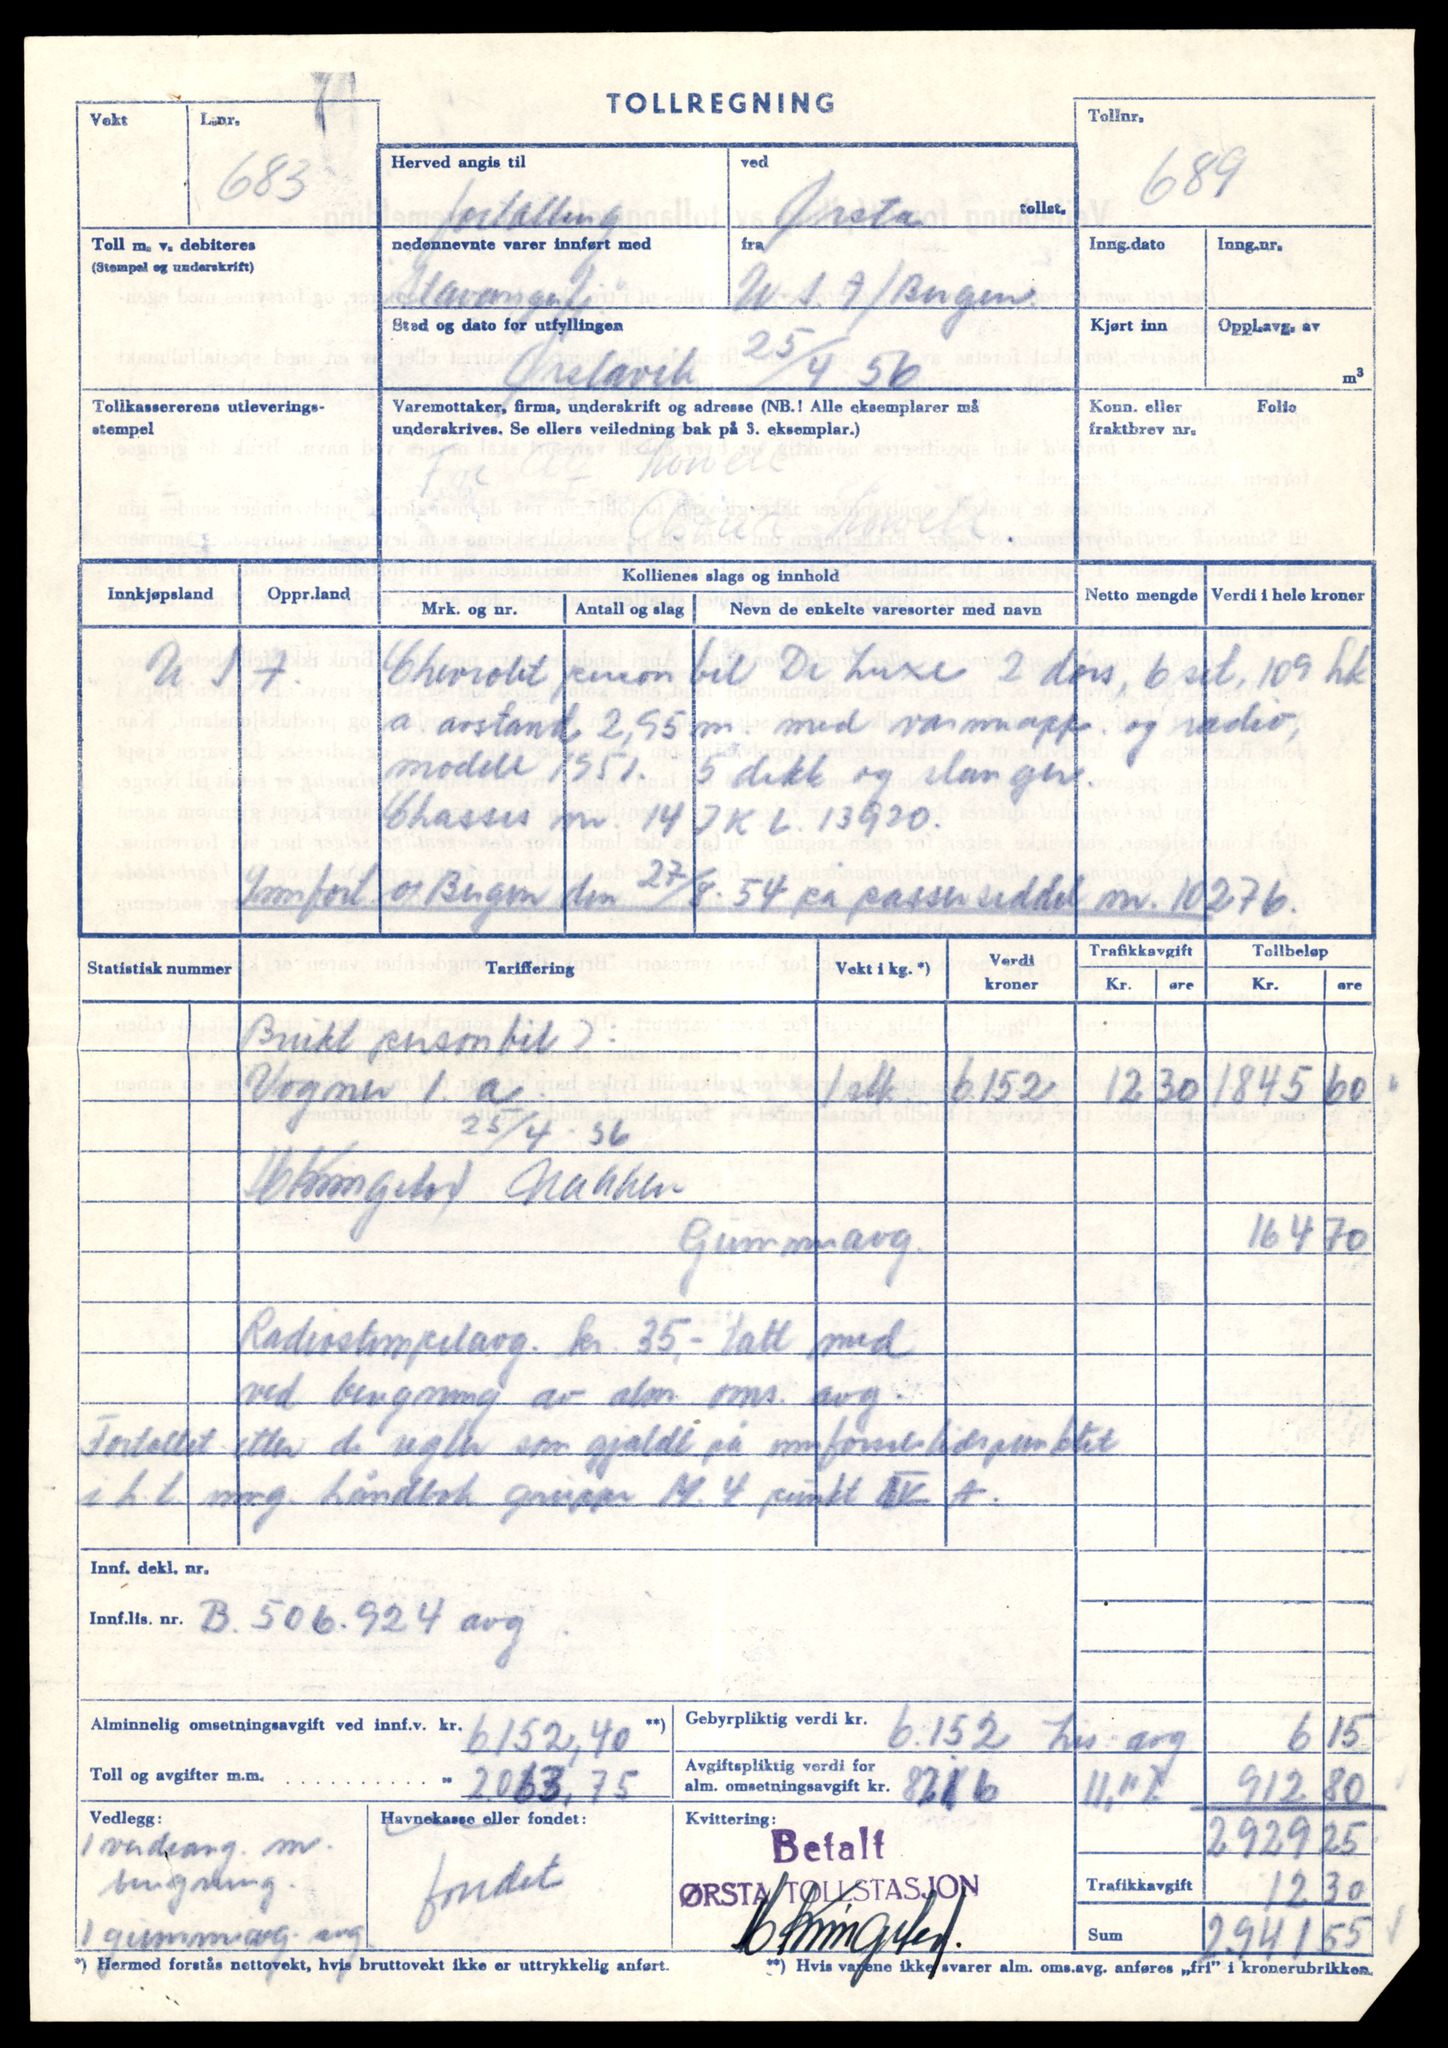 TOLLREGNING
Vekt
L.nr.
683
Herved angis til
fortolling
ved
Ørsta
tollst.
Tollnr.
689
Toll m. v. debiteres
(Stempel og underskrift)
nedennevnte varer innført med
Stavangerfj.
fra
U S A / Bergen
Inng.dato
Inng.nr.
Sted og dato for utfyllingen
Ørstavik 25/4 56
Kjørt inn
Oppl.avg. av
m³
Tollkassererens utleverings-
stempel
Varemottaker, firma, underskrift og adresse (NB.! Alle eksemplarer må
underskrives. Se ellers veiledning bak på 3. eksemplar.)
For
Konn. eller
fraktbrev nr.
Folio
Innkjøpsland
Oppr.land
Kollienes slags og innhold
Mrk. og nr.
Antall og slag
Nevn de enkelte varesorter med navn
Netto mengde
Verdi i hele kroner
U. S. A. Chevrolet personbil De Luxe 2 dørs, 6 syl, 109 hk
a. avstand 2,95 m. med varmeapp. og radio,
modell 1951. 5 dekk og slanger.
Chassis nr. 14 J K L. 13920.
Innført os Bergen den 27/8. 54 på passerseddel nr. 10276.
Statistisk nummer
Tariffering
Vekt i kg. *)
Verdi
kroner
Trafikkavgift
Kr.
øre
Tollbeløp
Kr.
øre
Brukt personbil).
Vogner 1. a. 1 stk. 6.152 12 30 1845 60
25/4 - 56
Gummiavg. 164 70
Radiostempelavg. kr. 35,- tatt med
ved beregning av alm. oms. avg.
Fortollet etter de regler som gjaldt på innførselstidspunktet
i h. t. mrg. håndbok gruppe M. 4 punkt IV A.
Innf. dekl. nr.
Innf.lis. nr. B. 506.924 avg.
Alminnelig omsetningsavgift ved innf.v. kr. 6152,40 **)
Gebyrpliktig verdi kr. 6.152 Lis - avg 6 15
Toll og avgifter m.m. . . . . . . . . . . „ 2063,75
Avgiftspliktig verdi for
alm. omsetningsavgift kr. 8216 11,11 % 912 80
2929 25
Vedlegg:
1 verdiang. m.
beregning.
1 gummiavg. avg
Havnekasse eller fondet:
fondet
Kvittering:
Betalt
ØRSTA TOLLSTASJON
Trafikkavgift 12 30
Sum 2941 55
*) Hermed forstås nettovekt, hvis bruttovekt ikke er uttrykkelig anført.
**) Hvis varene ikke svarer alm. oms.avg. anføres „fri” i kronerubrikken.